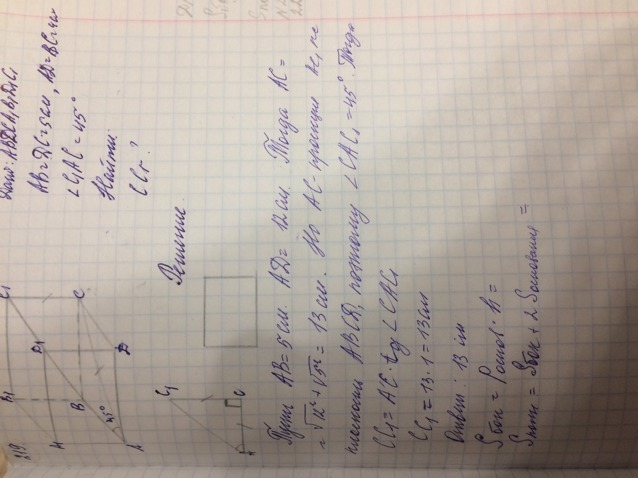 219
Дано: ABDCA1B1D1C1
AB=DC=5см, AD=BC=12см
∠C1AC=45°
Найти:
CC1-?
B1
C1
D1
B
C
45°
A
D
Решение
C1
A
C
Пусть AB=5см. AD=12см. Тогда AC=
=√12²+√5² = 13см. Но AC-проекция AC1 на
плоскость ABCD, поэтому ∠CAC1=45°. Тогда
CC1=AC·tg∠CAC1
CC1=13·1=13см
Ответ: 13см
Sбок=Pоснов·h=
Sполн=Sбок+2Sоснования=